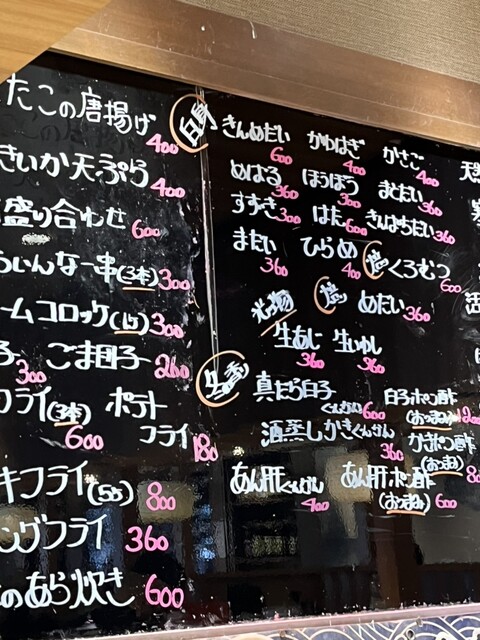 たこの唐揚げ 400
きいか天ぷら 400
盛り合わせ 600
ういんなー串(3本) 300
ームコロッケ(1コ) 300
子 300 ごま団子 260
フライ(3本) 600 ポテトフライ 180
キフライ(5コ) 800
ングフライ 360
のあら炊き 600
白身
きんめだい 600 かわはぎ 400 かさご 400
めばる 360 ほうぼう 300 まとだい 360
すずき 300 はた 600 きんぱちだい 360
まだい 360 ひらめ 400 くろむつ 600
光物 めだい 360
生あじ 360 生いわし 360
真だら白子ぐんかん 600 白子ポン酢(おつまみ)
酒蒸しかきぐんかん 360 かきポン酢(おつまみ)
あん肝ぐんかん 400 あん肝ポン酢(おつまみ) 600